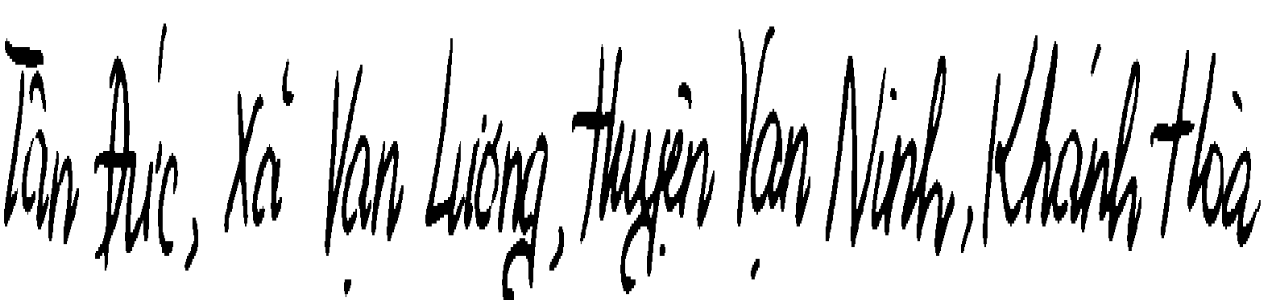 Tân Đức, Xã Vạn Lương, Huyện Vạn Ninh, Khánh Hoà